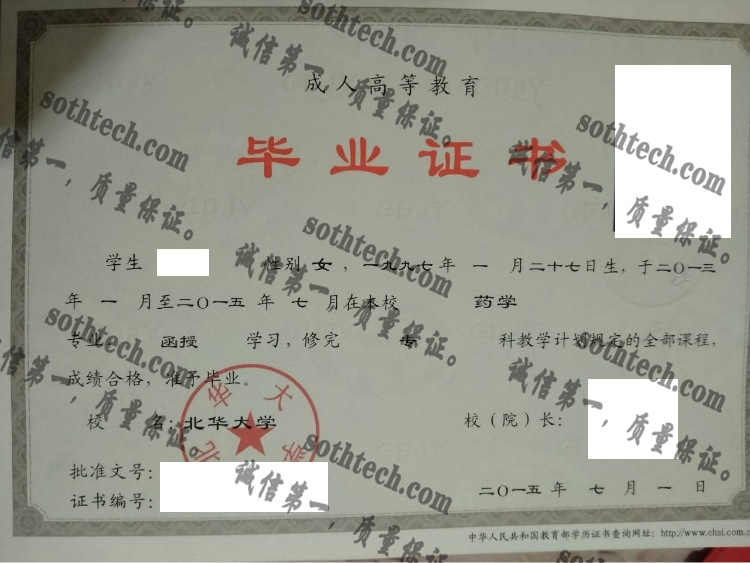 成人高等教育
毕业证书
学生 性别 女，一九九七年 一 月二十七日生，于二〇一三
年 一 月至二〇一五 年 七 月在本校 药学
专业 函授 学习，修完 专 科教学计划规定的全部课程，
成绩合格，准予毕业。
校 名：北华大学 校（院）长：
批准文号：
证书编号： 二〇一五 年 七 月 一 日
中华人民共和国教育部学历证书查询网址：http://www.chsi.com.c
北华大学
sothtech.com
诚信第一，质量保证。
sothtech.com
诚信第一，质量保证。
sothtech.com
诚信第一，质量保证。
sothtech.com
诚信第一，质量保证。
sothtech.com
诚信第一，质量保证。
sothtech.com
诚信第一，质量保证。
sothtech.com
诚信第一，质量保证。
诚信第一，质量保证。